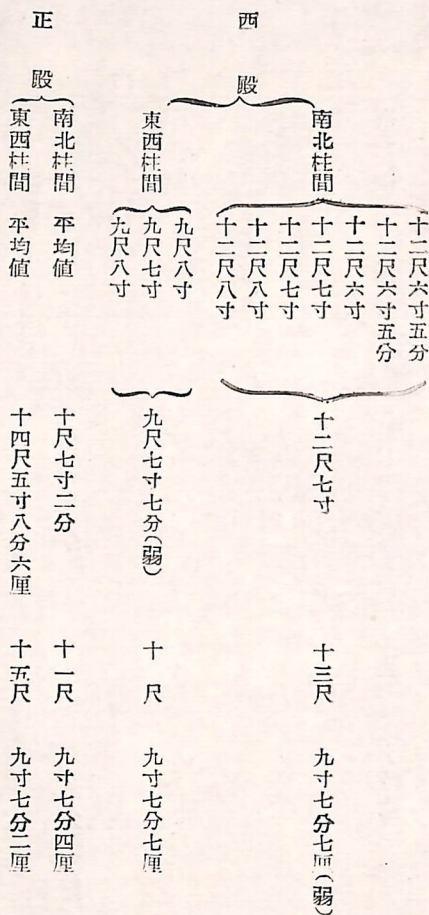 西殿
南北柱間
十二尺六寸五分
十二尺六寸五分
十二尺六寸
十二尺七寸
十二尺七寸
十二尺八寸
十二尺八寸
十二尺七寸
十三尺
九寸七分七厘(弱)
東西柱間
九尺八寸
九尺七寸
九尺八寸
九尺七寸七分(弱)
十尺
九寸七分七厘
正殿
南北柱間 平均値 十尺七寸二分 十一尺 九寸七分四厘
東西柱間 平均値 十四尺五寸八分六厘 十五尺 九寸七分二厘